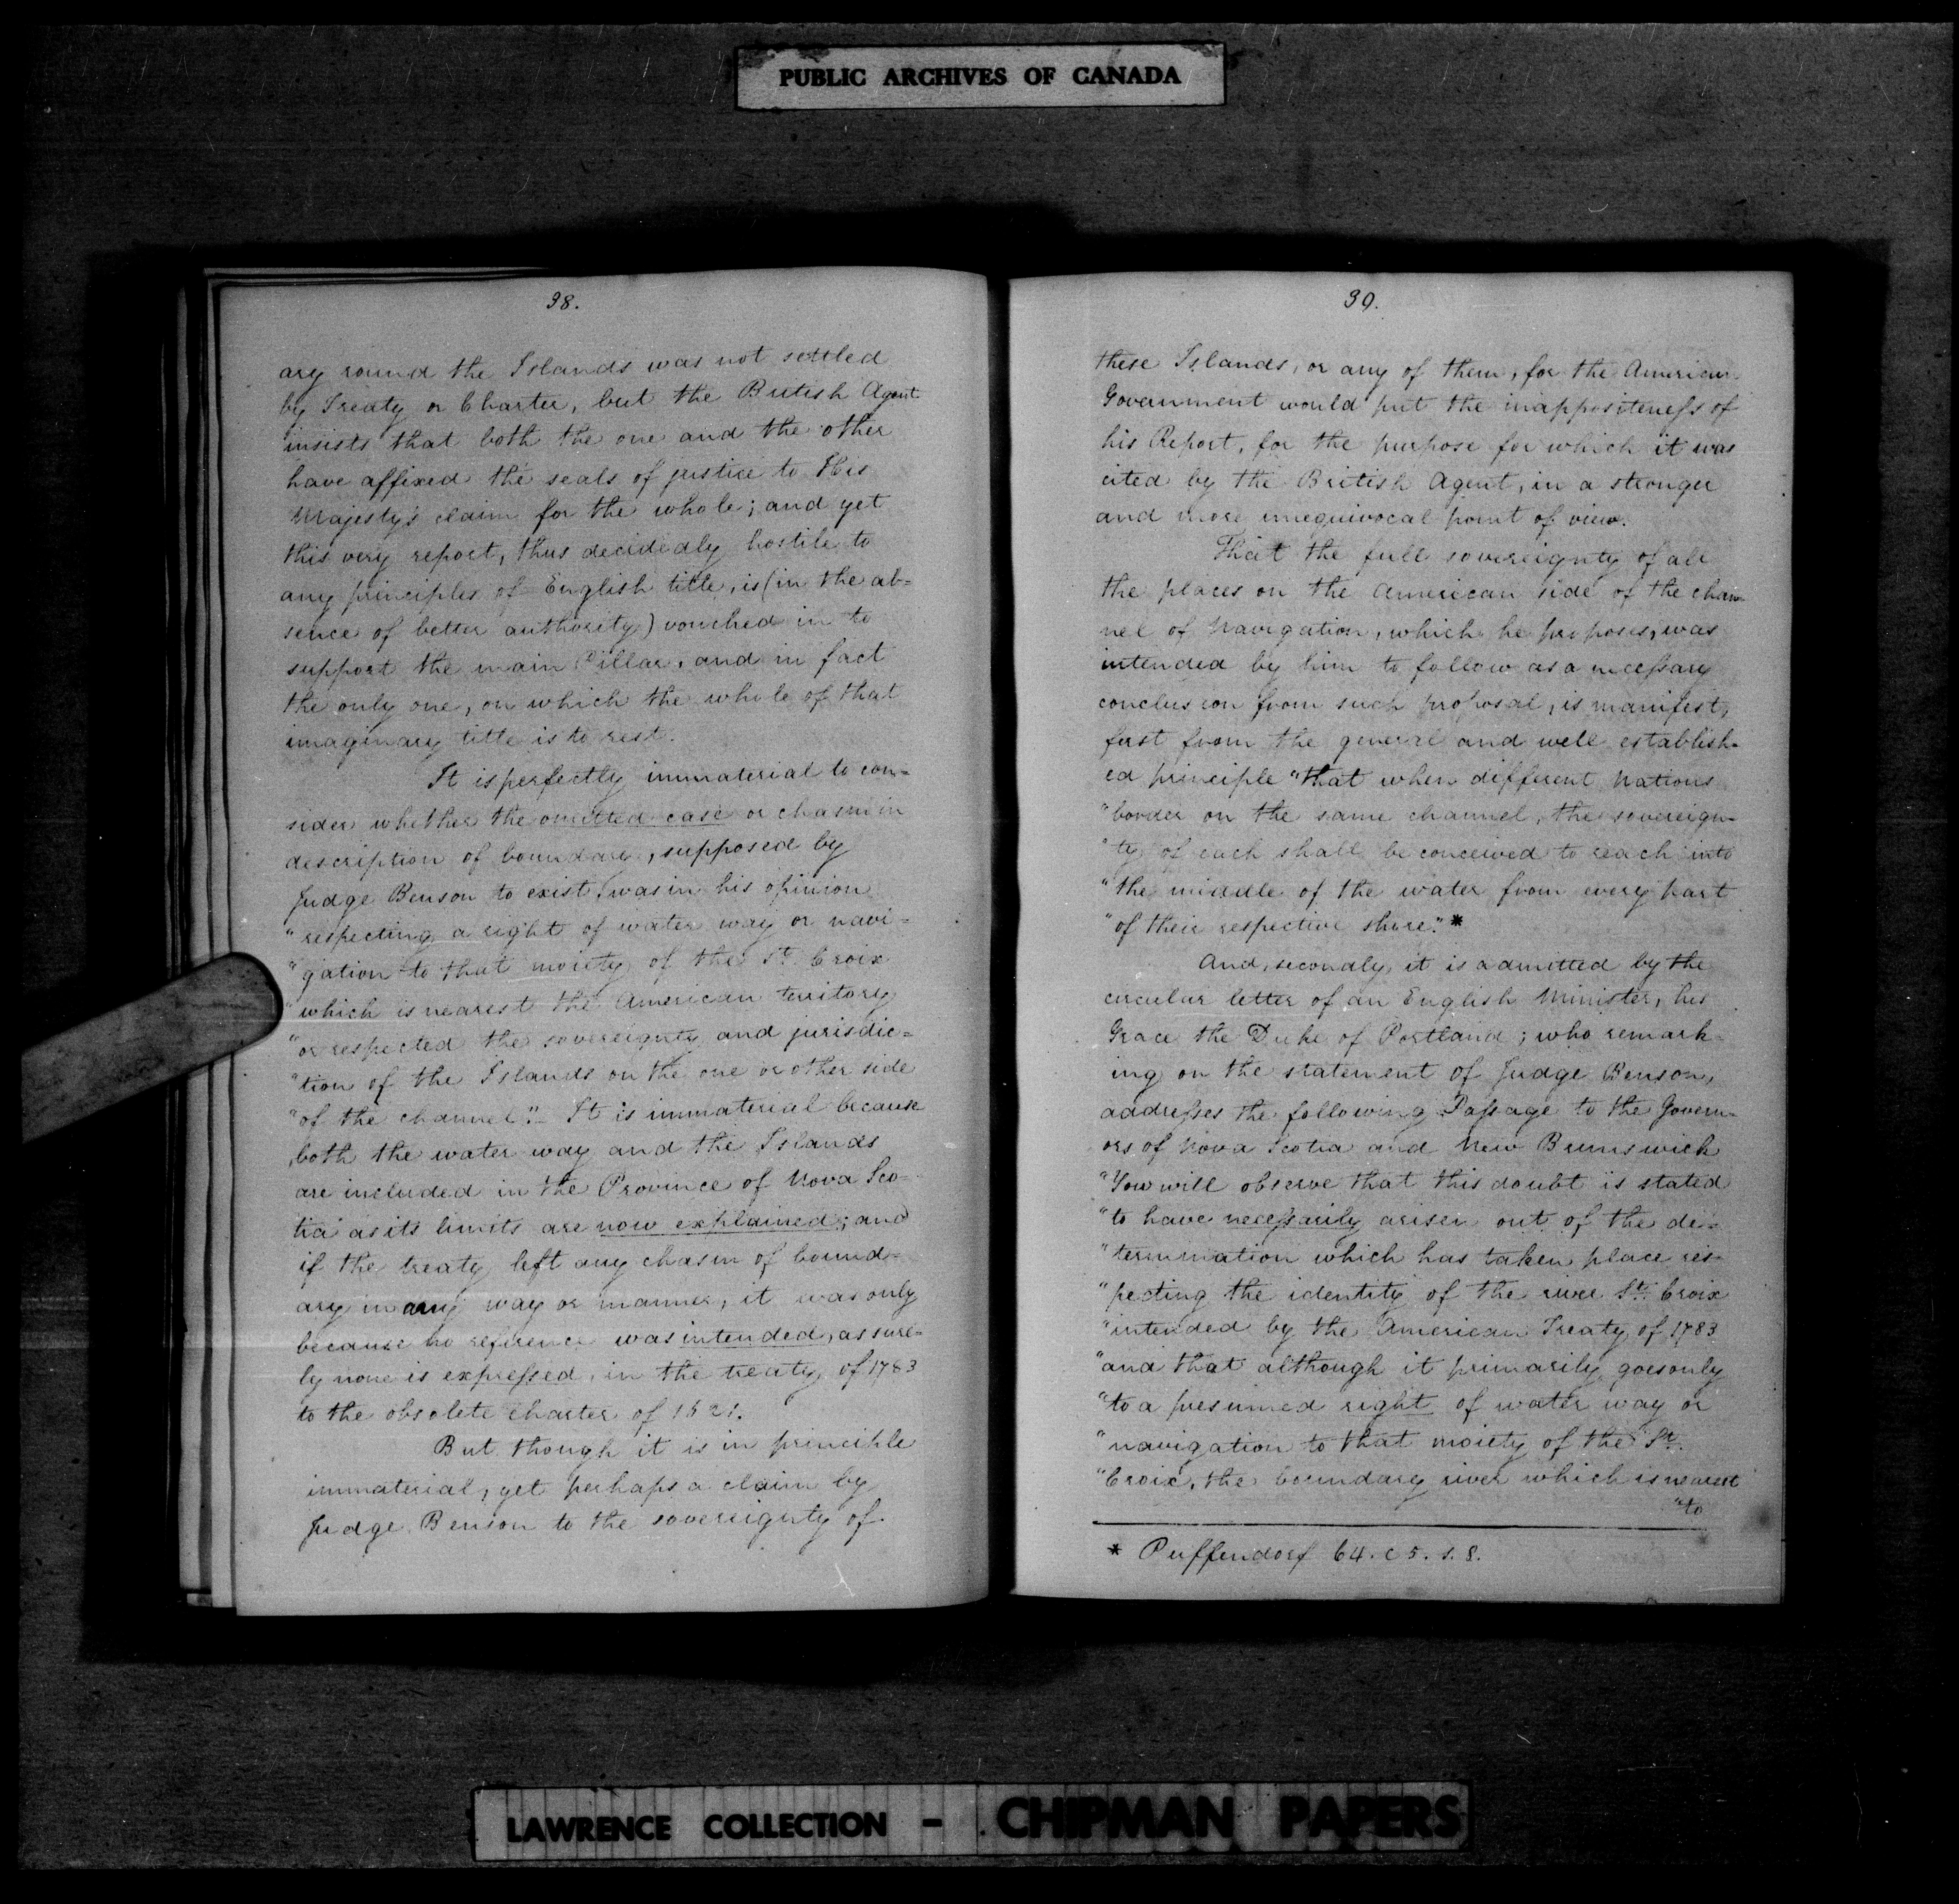 PUBLIC ARCHIVES OF CANADA
38.
ary round the Islands was not settled
by Treaty or Charter, but the British Agent
insists that both the one and the other
have affixed the seals of justice to His
Majesty's claim for the whole; and yet
this very report, thus decidedly hostile to
any principles of English title, is (in the ab=
sence of better authority) vouched in to
support the main Pillar, and in fact
the only one, on which the whole of that
imaginary title is to rest.
It is perfectly immaterial to con=
sider whether the omitted case or chasm in
description of boundary, supposed by
Judge Benson to exist, was in his opinion
"respecting a right of water way or navi=
"gation to that moiety of the St. Croix
"which is nearest the American territory
"or respected the sovereignty and jurisdic=
"tion of the Islands on the one or other side
"of the channel." It is immaterial because
both the water way and the Islands
are included in the Province of Nova Sco=
tia as its limits are now explained; and
if the treaty left any chasm of bound=
ary in any way or manner, it was only
because no reference was intended, as sure=
ly none is expressed, in the treaty of 1783
to the obsolete charter of 1621.
But though it is in principle
immaterial, yet perhaps a claim by
Judge Benson to the sovereignty of
39.
these Islands, or any of them, for the American
Government would put the inappositeness of
his Report, for the purpose for which it was
cited by the British Agent, in a stronger
and more unequivocal point of view.
That the full sovereignty of all
the places on the American side of the chan=
nel of Navigation, which he proposes, was
intended by him to follow as a necessary
conclusion from such proposal, is manifest,
first from the general and well establish=
ed principle "that when different Nations
"border on the same channel, the sovereign=
"ty of each shall be conceived to reach into
"the middle of the water from every part
"of their respective shore." *
And, secondly, it is admitted by the
circular letter of an English Minister, his
Grace the Duke of Portland; who remark=
ing on the statement of Judge Benson,
addresses the following Passage to the Govern=
ors of Nova Scotia and New Brunswick
"You will observe that this doubt is stated
"to have necessarily arisen out of the de=
"termination which has taken place res=
"pecting the identity of the river St. Croix
"intended by the American Treaty of 1783
"and that although it primarily goes only
"to a presumed right of water way or
"navigation to that moiety of the St.
"Croix, the boundary river which is nearest
"to
* Puffendorf b4. c5. s. 8.
LAWRENCE COLLECTION - CHIPMAN PAPERS